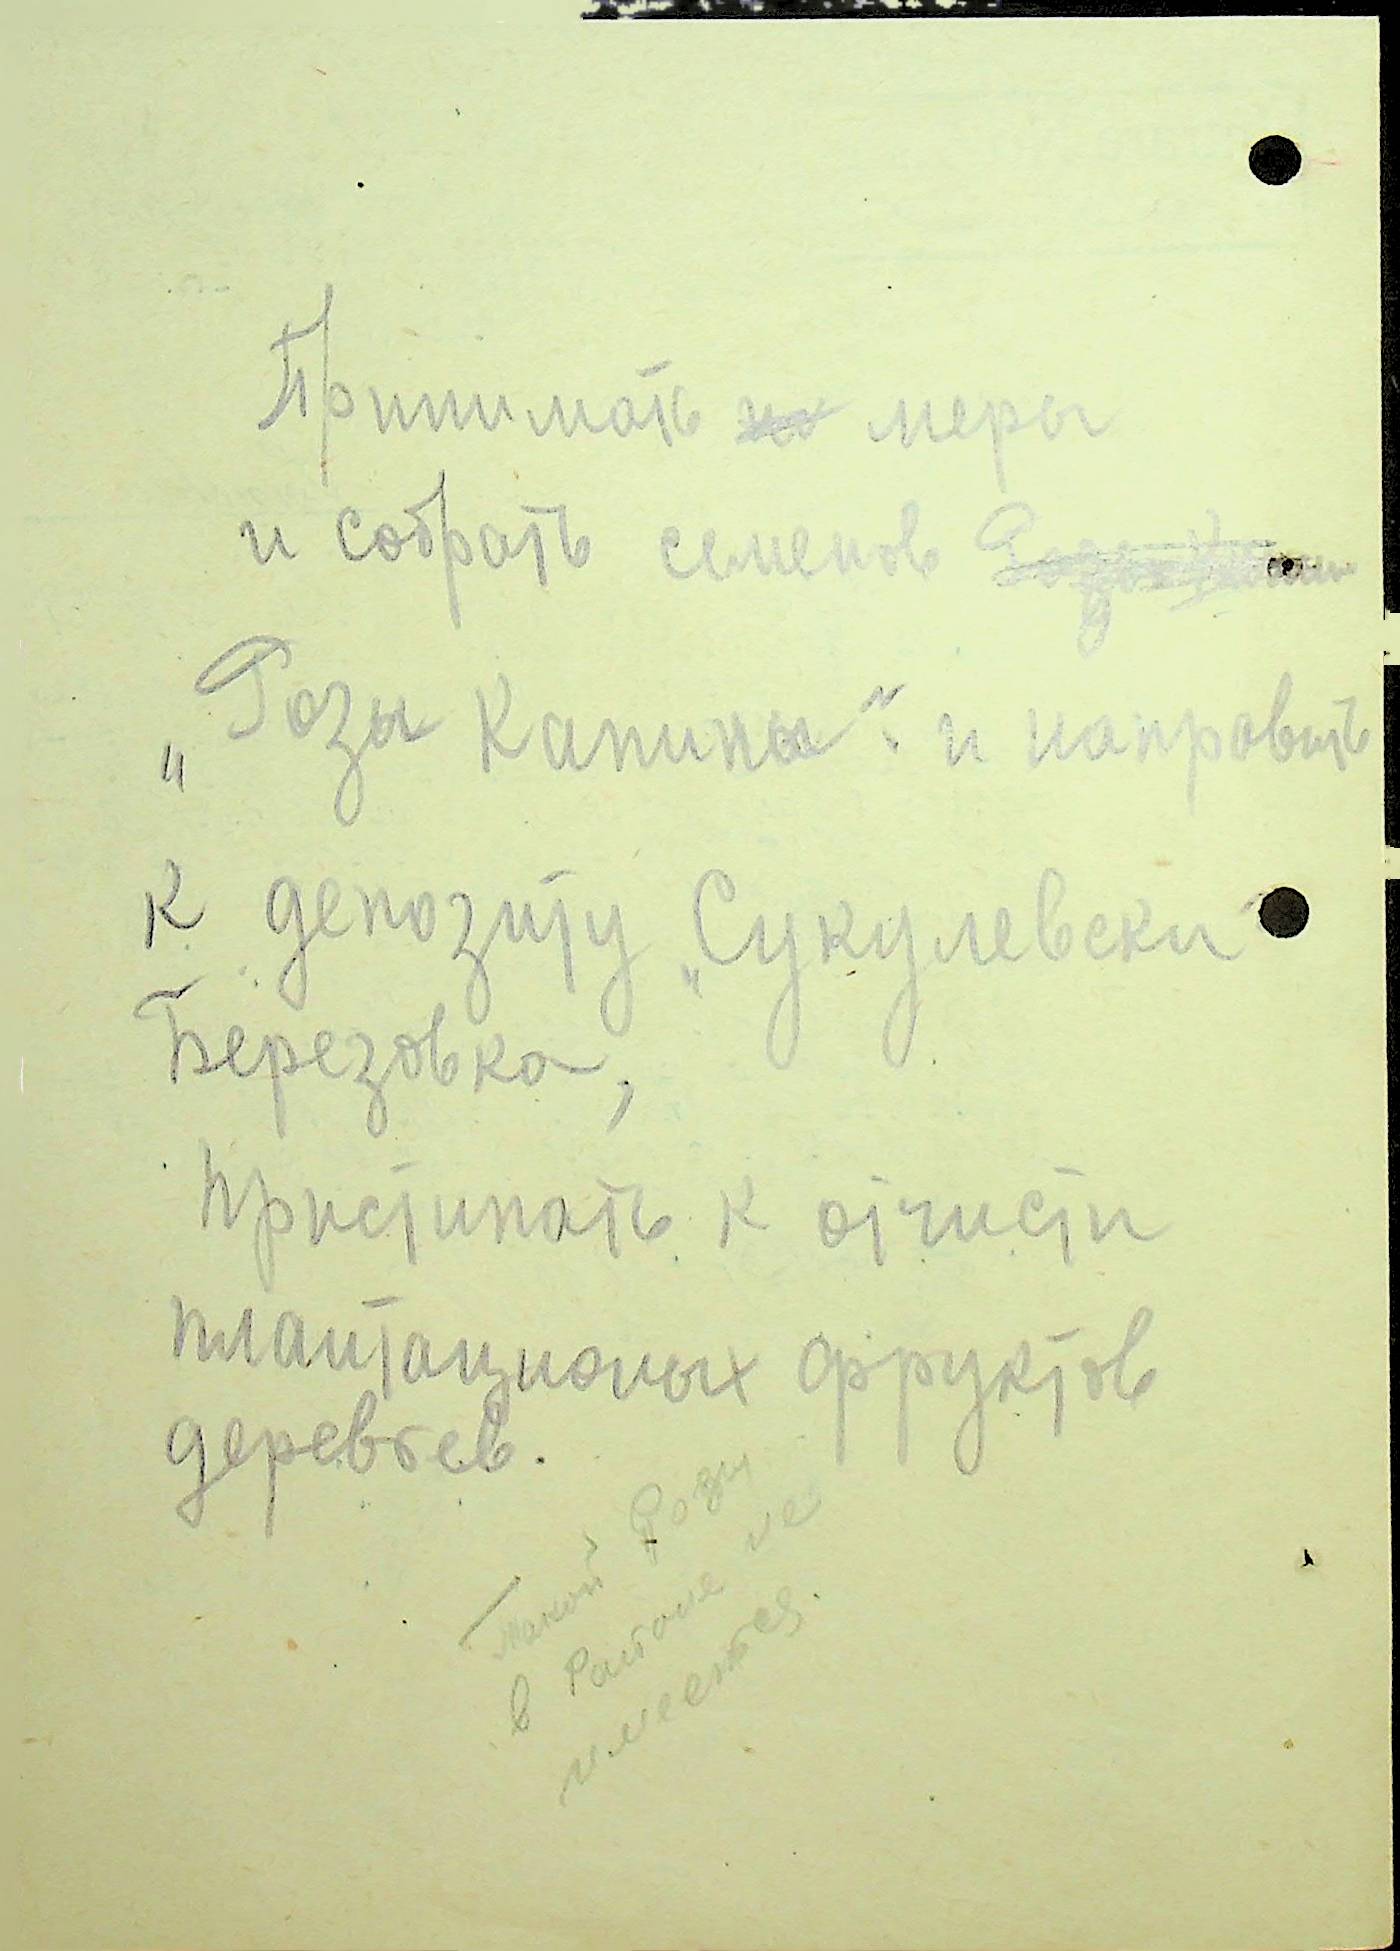 Принимать меры
и собрать семенов
„Розы Канины" и направить
к депозиту „Сукулевски"
Березовка,
Приступать к отчисти
плантационых фруктов
деревьев.
Такой Розы
в Районе не
имеется.